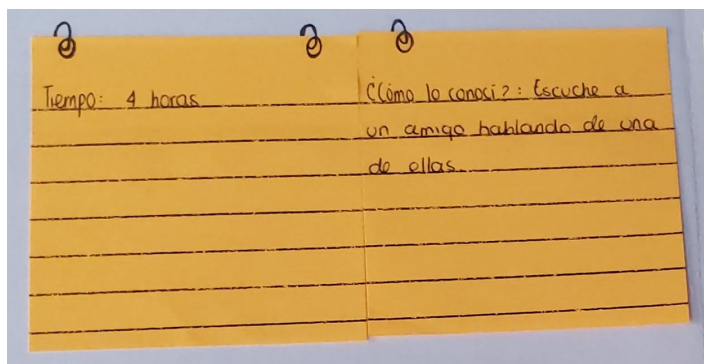 Tiempo: 4 horas
¿Cómo lo conoci?: Escuche a
un amigo hablando de una
de ellas.